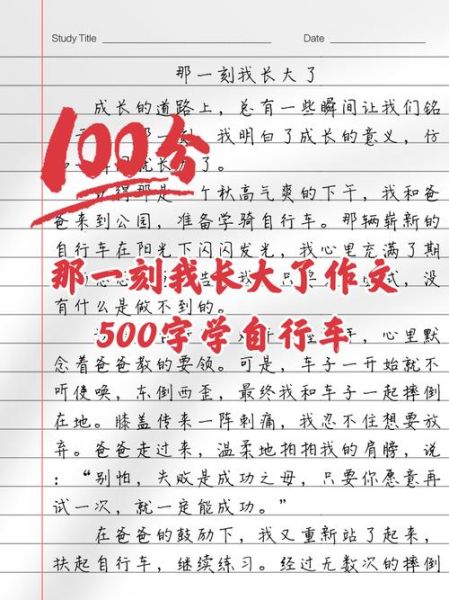 Study Title
Date
那一刻我长大了
成长的道路上，总有一些瞬间让我们铭
我明白了成长的意义，仿
长大了。
100分
得那是 个秋高气爽的下午，我和爸
爸来到公园，准备学骑自行车。那辆崭新的
自行车在阳光下闪闪发光，我心里充满了期
那一刻我长大了作文
没
有什么是做不到的。
500字学自行车
心里默
念着爸爸教的要领。可是，车子一开始就不
听使唤，东倒西歪，最终我和车子一起摔倒
在地。膝盖传来一阵刺痛，我忍不住想要放
弃。爸爸走过来，温柔地拍拍我的肩膀，说
：“别怕，失败是成功之母，只要你愿意再
试一次，就一定能成功。”
在爸爸的鼓励下，我又重新站了起来，
扶起自行车，继续练习。经过无数次的摔倒